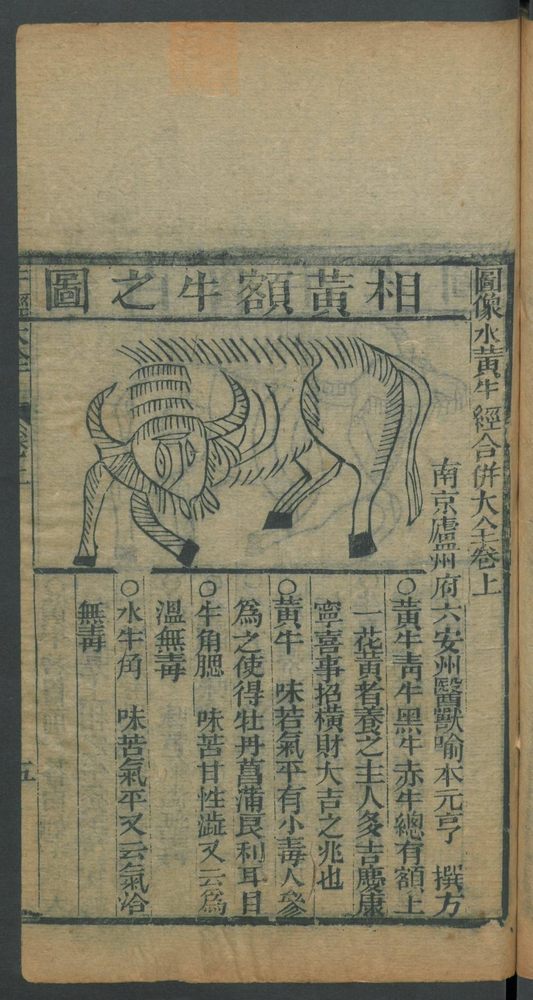 圖像水黃牛經合併大全卷上
南京廬州府六安州醫獸喻本元亨 撰方
相黃額牛之圖
○黃牛青牛黑牛赤牛總有額上
一花黃者養之主人多吉慶康
寧喜事招橫財大吉之兆也
○黃牛 味苦氣平有小毒人參
為之使得牡丹菖蒲良利耳目
○牛角腮 味苦甘性澁又云爲
溫無毒
○水牛角 味苦氣平又云氣冷
無毒
五